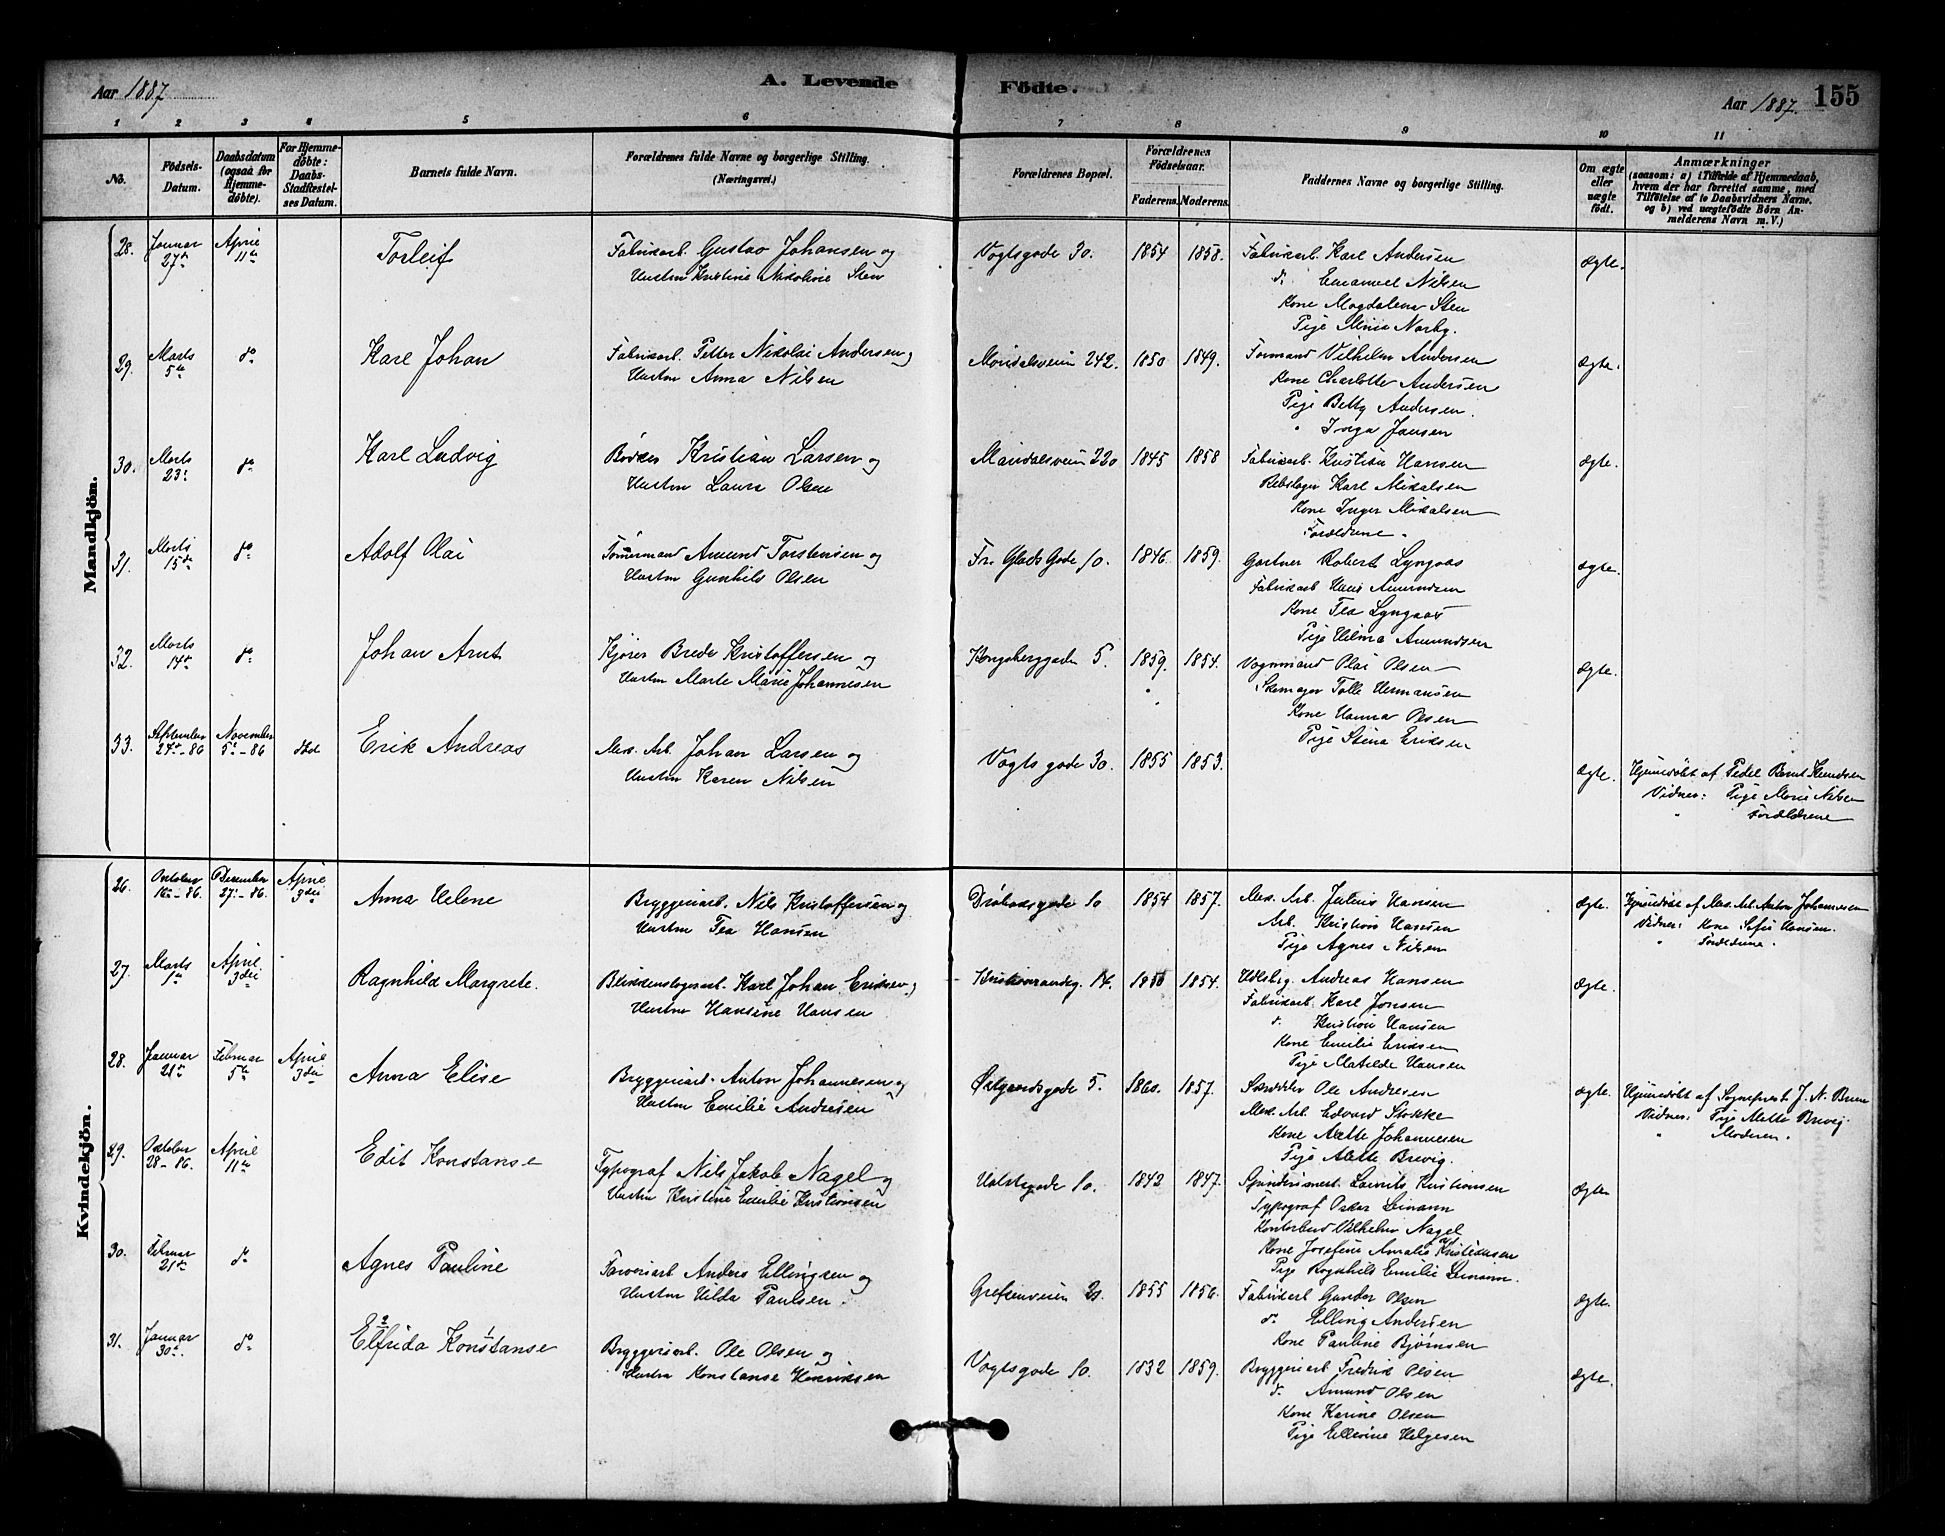 Aar 1887
A. Levende
Fødte.
Aar 1887.
155
1 2 3 4 5 6 7 8 9 10 11
No.
Fødsels-Datum.
Daabsdatum (ogsaa for Hjemmedøbte).
For Hjemmedøbte: Daabs-Stadfæstelses Datum.
Barnets fulde Navn.
Forældrenes fulde Navne og borgerlige Stilling.
(Næringsvei.)
Forældrenes Bopæl.
Forældrenes Fødselsaar.
Faderens. Moderens.
Faddernes Navne og borgerlige Stilling.
Om ægte eller uægte født.
Anmærkninger
(saasom: a) i Tilfælde af Hjemmedaab,
hvem der har forrettet samme, med
Tilføielse af to Daabsvidners Navne.
og b) ved uægtefødte Børn An-
melderens Navn m. V.)
Mandkjön.
28. Januar 27de April 11te Torleif
Fabrikarb. Gustav Johansen og
Hustru Kristine Nikoline Sten
Vogtsgade 30. 1854 1858.
Fabrikarb. Karl Andersen
do Emanuel Nilsen
Kone Magdalena Sten
Pige Mina Norby.
ægte.
29. Marts 5te do Karl Johan
Fabrikarb. Petter Nikolai Andersen og
Hustru Anna Nilsen
Maridalsveien 242. 1850 1849.
Formand Vilhelm Andersen
Kone Charlotte Andersen
Pige Betty Andersen.
" Inga Jansen
ægte.
30. Marts 23. do Karl Ludvig
Bødker Kristian Larsen og
Hustru Laura Olsen
Maridalsveien 220 1845 1858
Fabrikarb. Kristian Hansen
Rebslager Karl Mikalsen
Kone Inger Mikalsen
Forældrene.
ægte.
31. Marts 15de do Adolf Olai
Tømmermand Amund Torstensen og
Hustru Gunhild Olsen
Fr. Glads Gade 10. 1846. 1859.
Gartner Robert Lyngaas
Fabrikarb Hans Amundsen
Kone Tea Lyngaas
Pige Hilma Amundsen
ægte.
32. Marts 14de do Johan Arnt
Kjører Brede Kristoffersen og
Hustru Marte Marie Johannesen
Kongsberggaden 5. 1859. 1854.
Vognmand Olai Olsen
Skomager Tolle Hermansen
Kone Hanna Olsen
Pige Stina Eriksen
ægte.
33. September 24de-86 November 5te-86 død Erik Andreas
Mek. Arb. Johan Larsen og
Hustru Karen Nilsen
Vogts gade 30. 1855 1853.
ægte.
Hjemmedøbt af Pedel Bernt Knudsen
Vidner: Pige Marie Nilsen
" Forældrene
Kvindekjön.
26. Oktober 16de-86. December 27.-86. April 3die Anna Helene
Bryggeriarb. Nils Kristoffersen og
Hustru Tea Hansen
Drøbaksgade 10 1854 1857.
Mek. Arb. Julius Hansen
Arb. Kristian Hansen
Pige Agnes Nilsen
ægte.
Hjemmedøbt af Mek. Arb. Anton Johannesen
Vidner: Kone Sofie Hansen.
" Forældrene.
27. Marts 1ste April 3die Ragnhild Margrete.
Blikkenslagerarb. Karl Johan Eriksen og
Hustru Hansine Hansen
Kristiansandsg. 14. 1854.
Andreas Hansen
Fabrikarb. Karl Jonsen
do Kristian Hansen
Kone Emilie Eriksen
Pige Matilde Hansen
ægte.
28. Januar 21de Februar 5te April 3die Anna Elise
Bryggeriarb. Anton Johannesen og
Hustru Emilie Andresen
Østgaardsgade 5. 1860. 1857.
Skrædder Ole Andresen
Mek. Arb. Edvard Stokke
Kone Alette Johannesen
Pige Alette Brevig.
ægte.
Hjemmedøbt af Sogneprest J. N. Brun
Vidner: Pige Alette Brevig.
" Moderen.
29. Oktober 28-86. April 11te Edit Konstanse
Typograf Nils Jakob Nagel og
Hustru Kristine Emilie Kristiansen
Holstsgade 10. 1842 1847.
Laurits Kristiansen
Typograf Oskar Leinann
Kontorbud Vilhelm Nagel
Kone Josefine Amalie Kristiansen
Pige Ragnhild Emilie Leinann.
ægte
30. Februar 21de do Agnes Pauline
Farveriarb Anders Ellingsen og
Hustru Hilda Paulsen.
Grefsenveien 1855 1856.
Fabrikarb Gunder Olsen
do Elling Andersen
Kone Pauline Bjørnsen
ægte.
31. Januar 30te. do Elfrida Konstanse
Bryggeriarb. Ole Olsen og
Hustru Konstanse Henriksen
Vogtsgade 10. 1832 1859.
Bryggeriarb Fredrik Olsen
do Amund Olsen
Kone Karine Olsen
Pige Ellevine Helgesen
ægte.